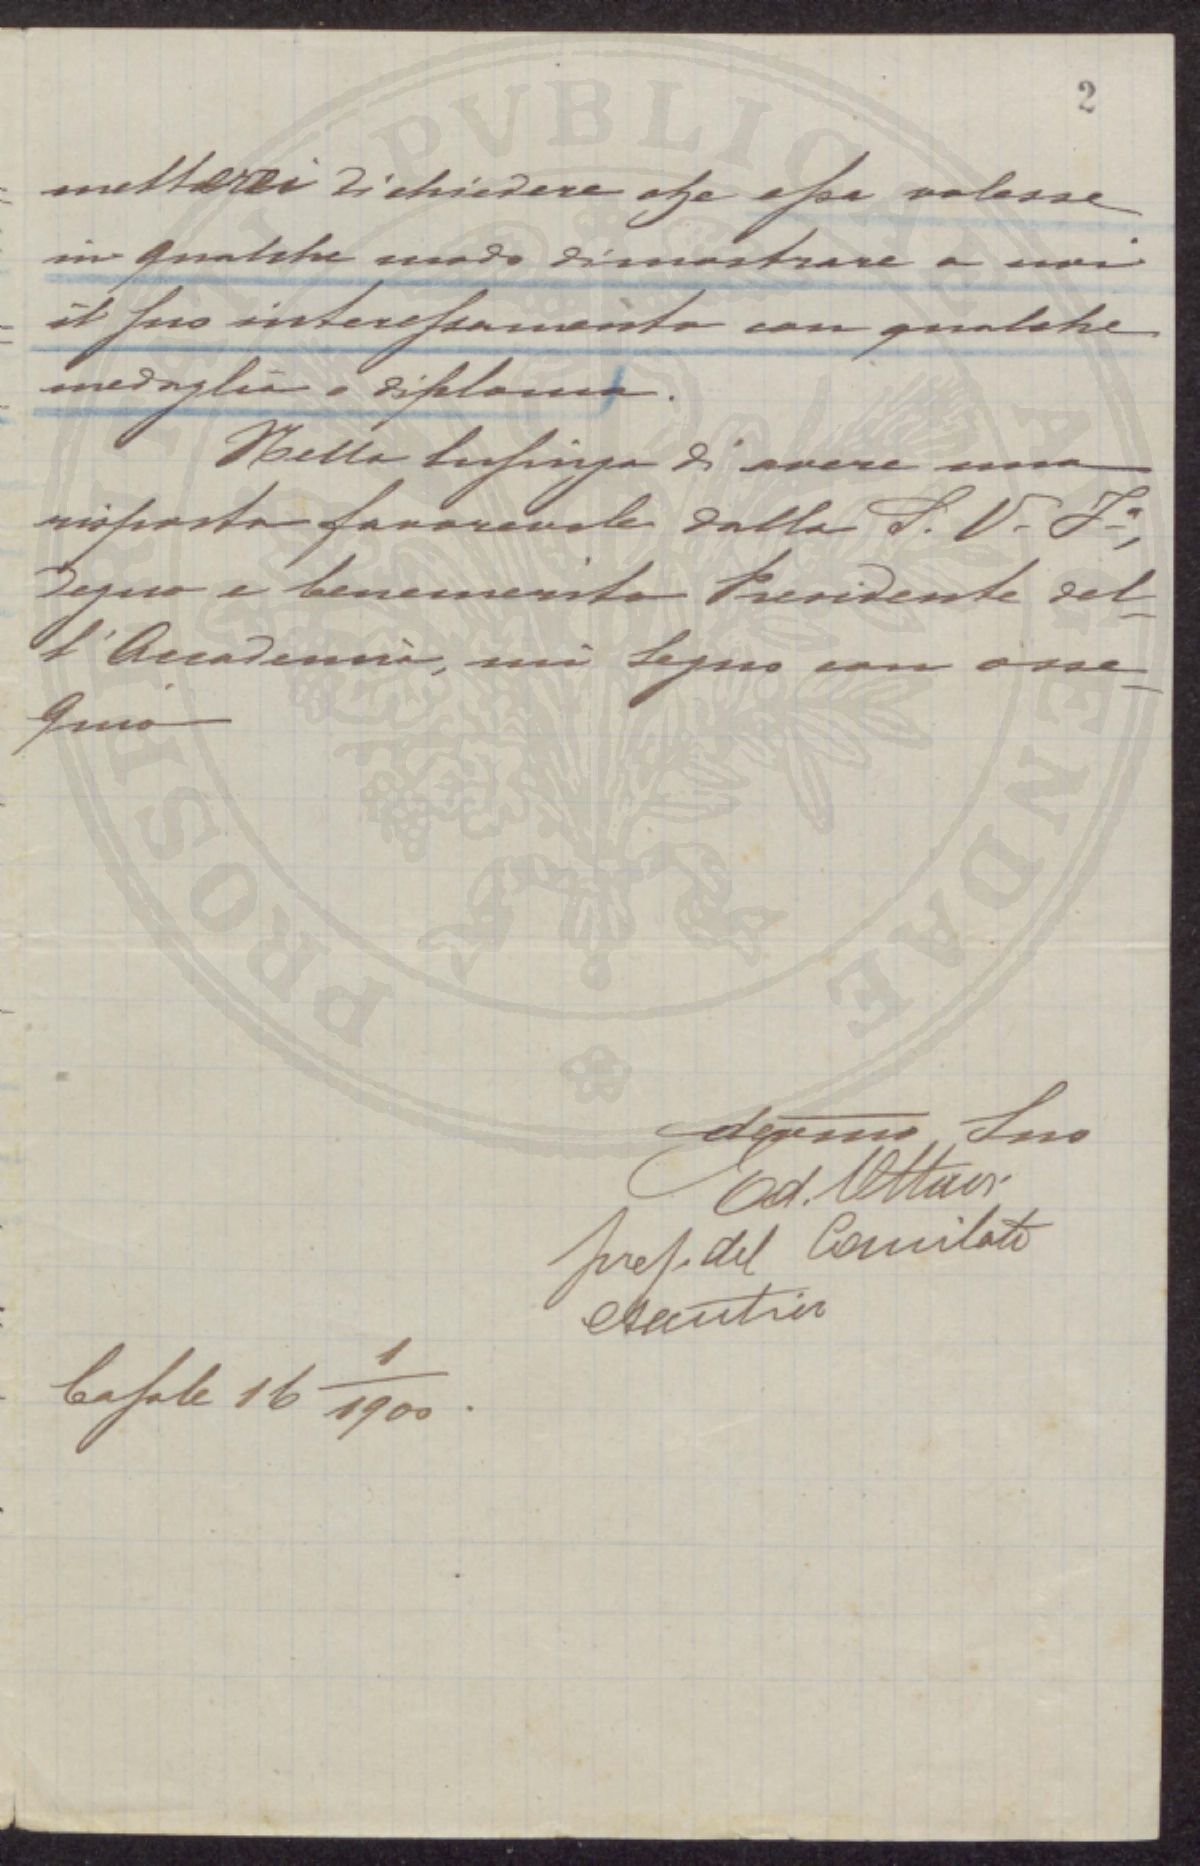 2
metterei di chiedere che essa volesse
in qualche modo dimostrare a noi
il suo interessamento con qualche
medaglia o diploma.
Nella lusinga di avere una
risposta favorevole dalla S. V. Ill.ª,
degno e benemerito Presidente del-
l'Accademia, mi segno con osse-
quio
devmo Suo
Ed. Ottavi
pres. del Comitato
esecutivo
Casale 16 1/1900.
PROSPERITATI PVBLICAE AVGENDAE